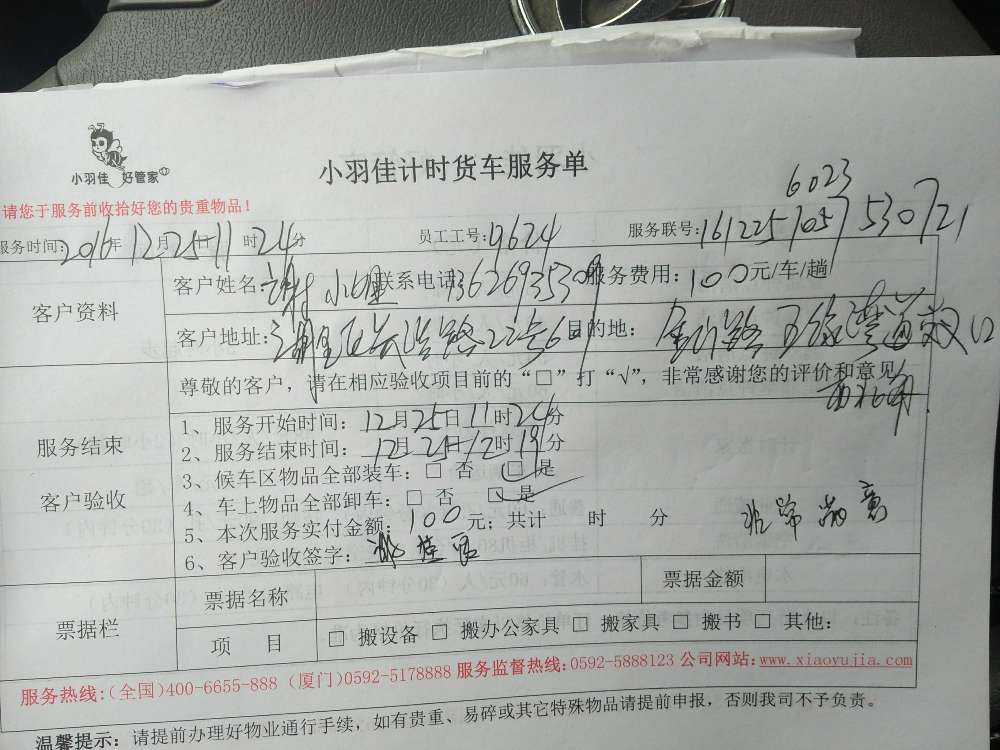 小羽佳 好管家
小羽佳计时货车服务单
请您于服务前收拾好您的贵重物品！
6023
服务时间:2016年12月25日11时24分 员工工号:9624 服务联号:1612251057530721
客户资料
客户姓名: 小姐 联系电话 服务费用:100元/车/趟
客户地址: 路22号6 目的地: 金山路五缘湾道 口
尊敬的客户，请在相应验收项目前的“□”打“√”，非常感谢您的评价和意见
服务结束
客户验收
1、服务开始时间：12月25日11时24分
2、服务结束时间：12月25日12时19分
3、候车区物品全部装车：□ 否 □ 是
4、车上物品全部卸车：□ 否 □ 是
5、本次服务实付金额：100元；共计 时 分
6、客户验收签字：
票据栏
票据名称 票据金额
项 目 □ 搬设备 □ 搬办公家具 □ 搬家具 □ 搬书 □ 其他：
服务热线:(全国)400-6655-888 (厦门)0592-5178888 服务监督热线:0592-5888123 公司网站:www.xiaoyujia.com
温馨提示：请提前办理好物业通行手续，如有贵重、易碎或其它特殊物品请提前申报，否则我司不予负责。